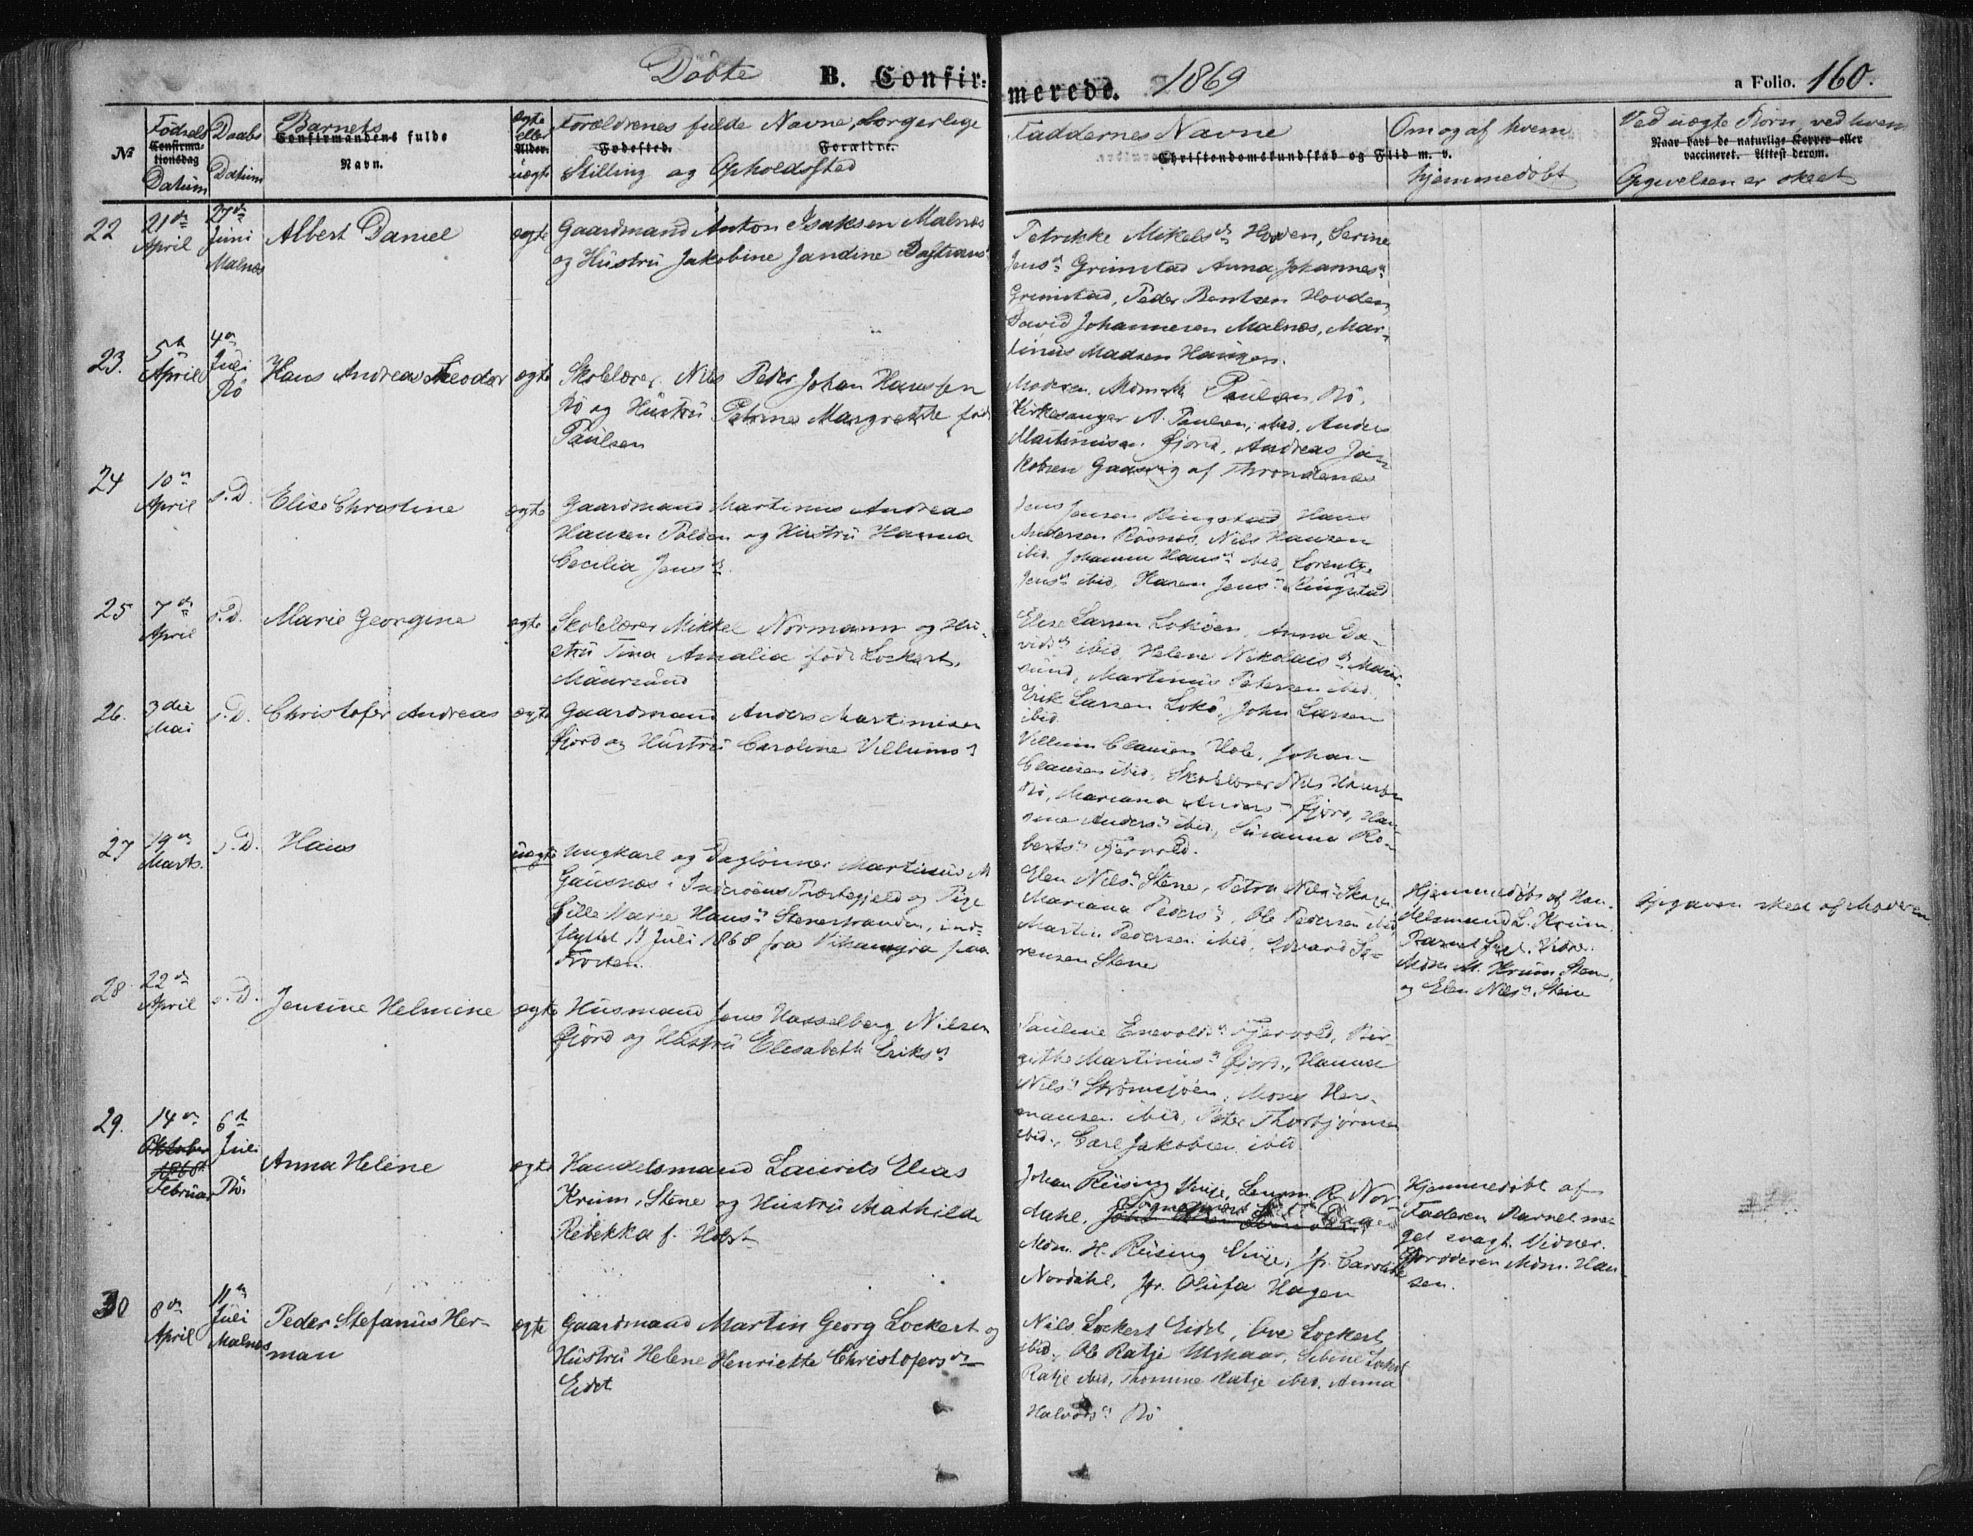 Døbte B. Confirmerede. 1869 a Folio. 160.
No
Fødsels Confirmationsdag Datum
Daabs Datum
Barnets Confirmandens fulde Navn.
ægte eller Alder. uægte
Forældrenes fulde Navne, borgerlige
Fødested. Forældre.
Stilling og Opholdssted
Faddernes Navne
Christendomskundskab og Flid m. v.
Om og af hvem hjemmedøbt
Ved uægte Børn, ved hvem
Naar havt de naturlige Kopper eller vaccineret. Attest derom.
Opgivelsen er skeet
22 21de April 27de Juni Malnæs Albert Daniel ægte
Gaardmand Anton Isaksen Malnæs
og Hustru Jakobine Jandine
Petrikke Mikelsdr Hoven, Serine
Jensdr Grimstad Anna Johannesdr
Grimstad, Peder Bentsen Hovden,
David Johannesen Malnæs, Mar-
tinus Madsen Haugen.
23. 5te April 4de Juli Bø Hans Andreas Theodor ægte
Skolelærer Nils Peder Johan Hanssen
Bø og Hustru Petrine Margrethe født
Paulsen
Moderen, Paulsen Bø,
Kirkesanger A. Paulsen, ibid. Anders
Martinusen Fjord, Andreas Ja-
kobsen Gaasvig af Throndenæs
24 10de April s. D. Elise Christine ægte
Gaardmand Martinus Andreas
Hansen Valden og Hustru Hanna
Cecilia Jensdr.
Jens Jensen Ringstad Hans
Andersen Røsnæs, Nils Hansen
ibid. Johanna Hansdr ibid, Lorentze
Jensdr ibid, Karen Jensdr Ringstad
25 7de April s. D. Marie Georgine ægte
Skolelærer Mikkel Normann og Hu-
stru Tina Amalia født Lockert,
Maursund
Else Larsen Lokøen, Anna Da-
vidsdr ibid, Helene Nikolaisdr Maur-
sund, Martinus Petersen ibid,
Erik Larsen Lokø, John Larsen
ibid
26. 3die Mai s. D. Christofer Andreas ægte
Gaardmand Anders Martinusen
Fjord og Hustru Caroline Villumsdr
Villum Clausen Hole, Johan
Clausen ibid, Skolelærer Nils Hansen
Bø, Mariana Andersdr Fjord, Han-
sine Andersdr ibid, Susanna Ro-
bertsdr Fjervold.
27 19de Marts. s. D. Hans uægte
Ungkarl og Dagleinner Martinus M
Gausnæs, Inderøens Præstegjeld og Pige
Sille Marie Hansdr Stenestranden, ind-
flyttet 11 Juli 1868 fra Vikamyra paa
Frosten.
Elen Nilsdr Stene, Petra Nilsdr Skagen
Mariana Pedersdr, Ole Pedersen ibid
Martin Pedersen ibid, Edvard Sø-
rensen Stene
Hjemmedøbt af Han-
delsmand L. Krum.
Barnet svagt. Vidner:
Mdm M. Krum Stene
og Elen Nilsdr Steine
Opgaven skeet af Moderen
28. 22de April s. D. Jensine Helmine ægte
Husmand Jens Hasselberg Nilsen
Fjord og Hustru Elisabeth Eriksdr
Pauline Enevoldsdr Fjervold, Bir-
githe Martinusdr Fjord, Hanna
Nilsdr Strømsjøen, Moses Her-
mansen ibid, Peter Thorbjørnsen
ibid., Carl Jakobsen ibid
29. 14de Oktober 1868 Februar 6te Juli Bø. Anna Helene ægte
Handelsmand Laurits Elias
Krum, Stene og Hustru Mathilde
Rebekka f. Holst
Johan Reusing Vinje, Lensm. R. Nor-
dahl, Sognepræst
Mdm. H. Reusing Vinje, Fr. Caroline
Nordahl, Fr. Olufa Hagen
Hjemmedøbt af
Faderen Barnet me-
get svagt. Vidner.
Jordmoderen Mdm. Han-
sen.
30 8de April 11te Juli Malnæs Peder Stefanus Her-
man ægte
Gaardmand Martin Georg Lockert og
Hustru Helene Henriette Christofersdr
Eidet
Nils Lockert Eidet, Ove Lockert
ibid, Ole Ratje Uthaar, Sebine Lockert
Ratje ibid, Thomine Ratje ibid. Anna
Halvorsdr Bø